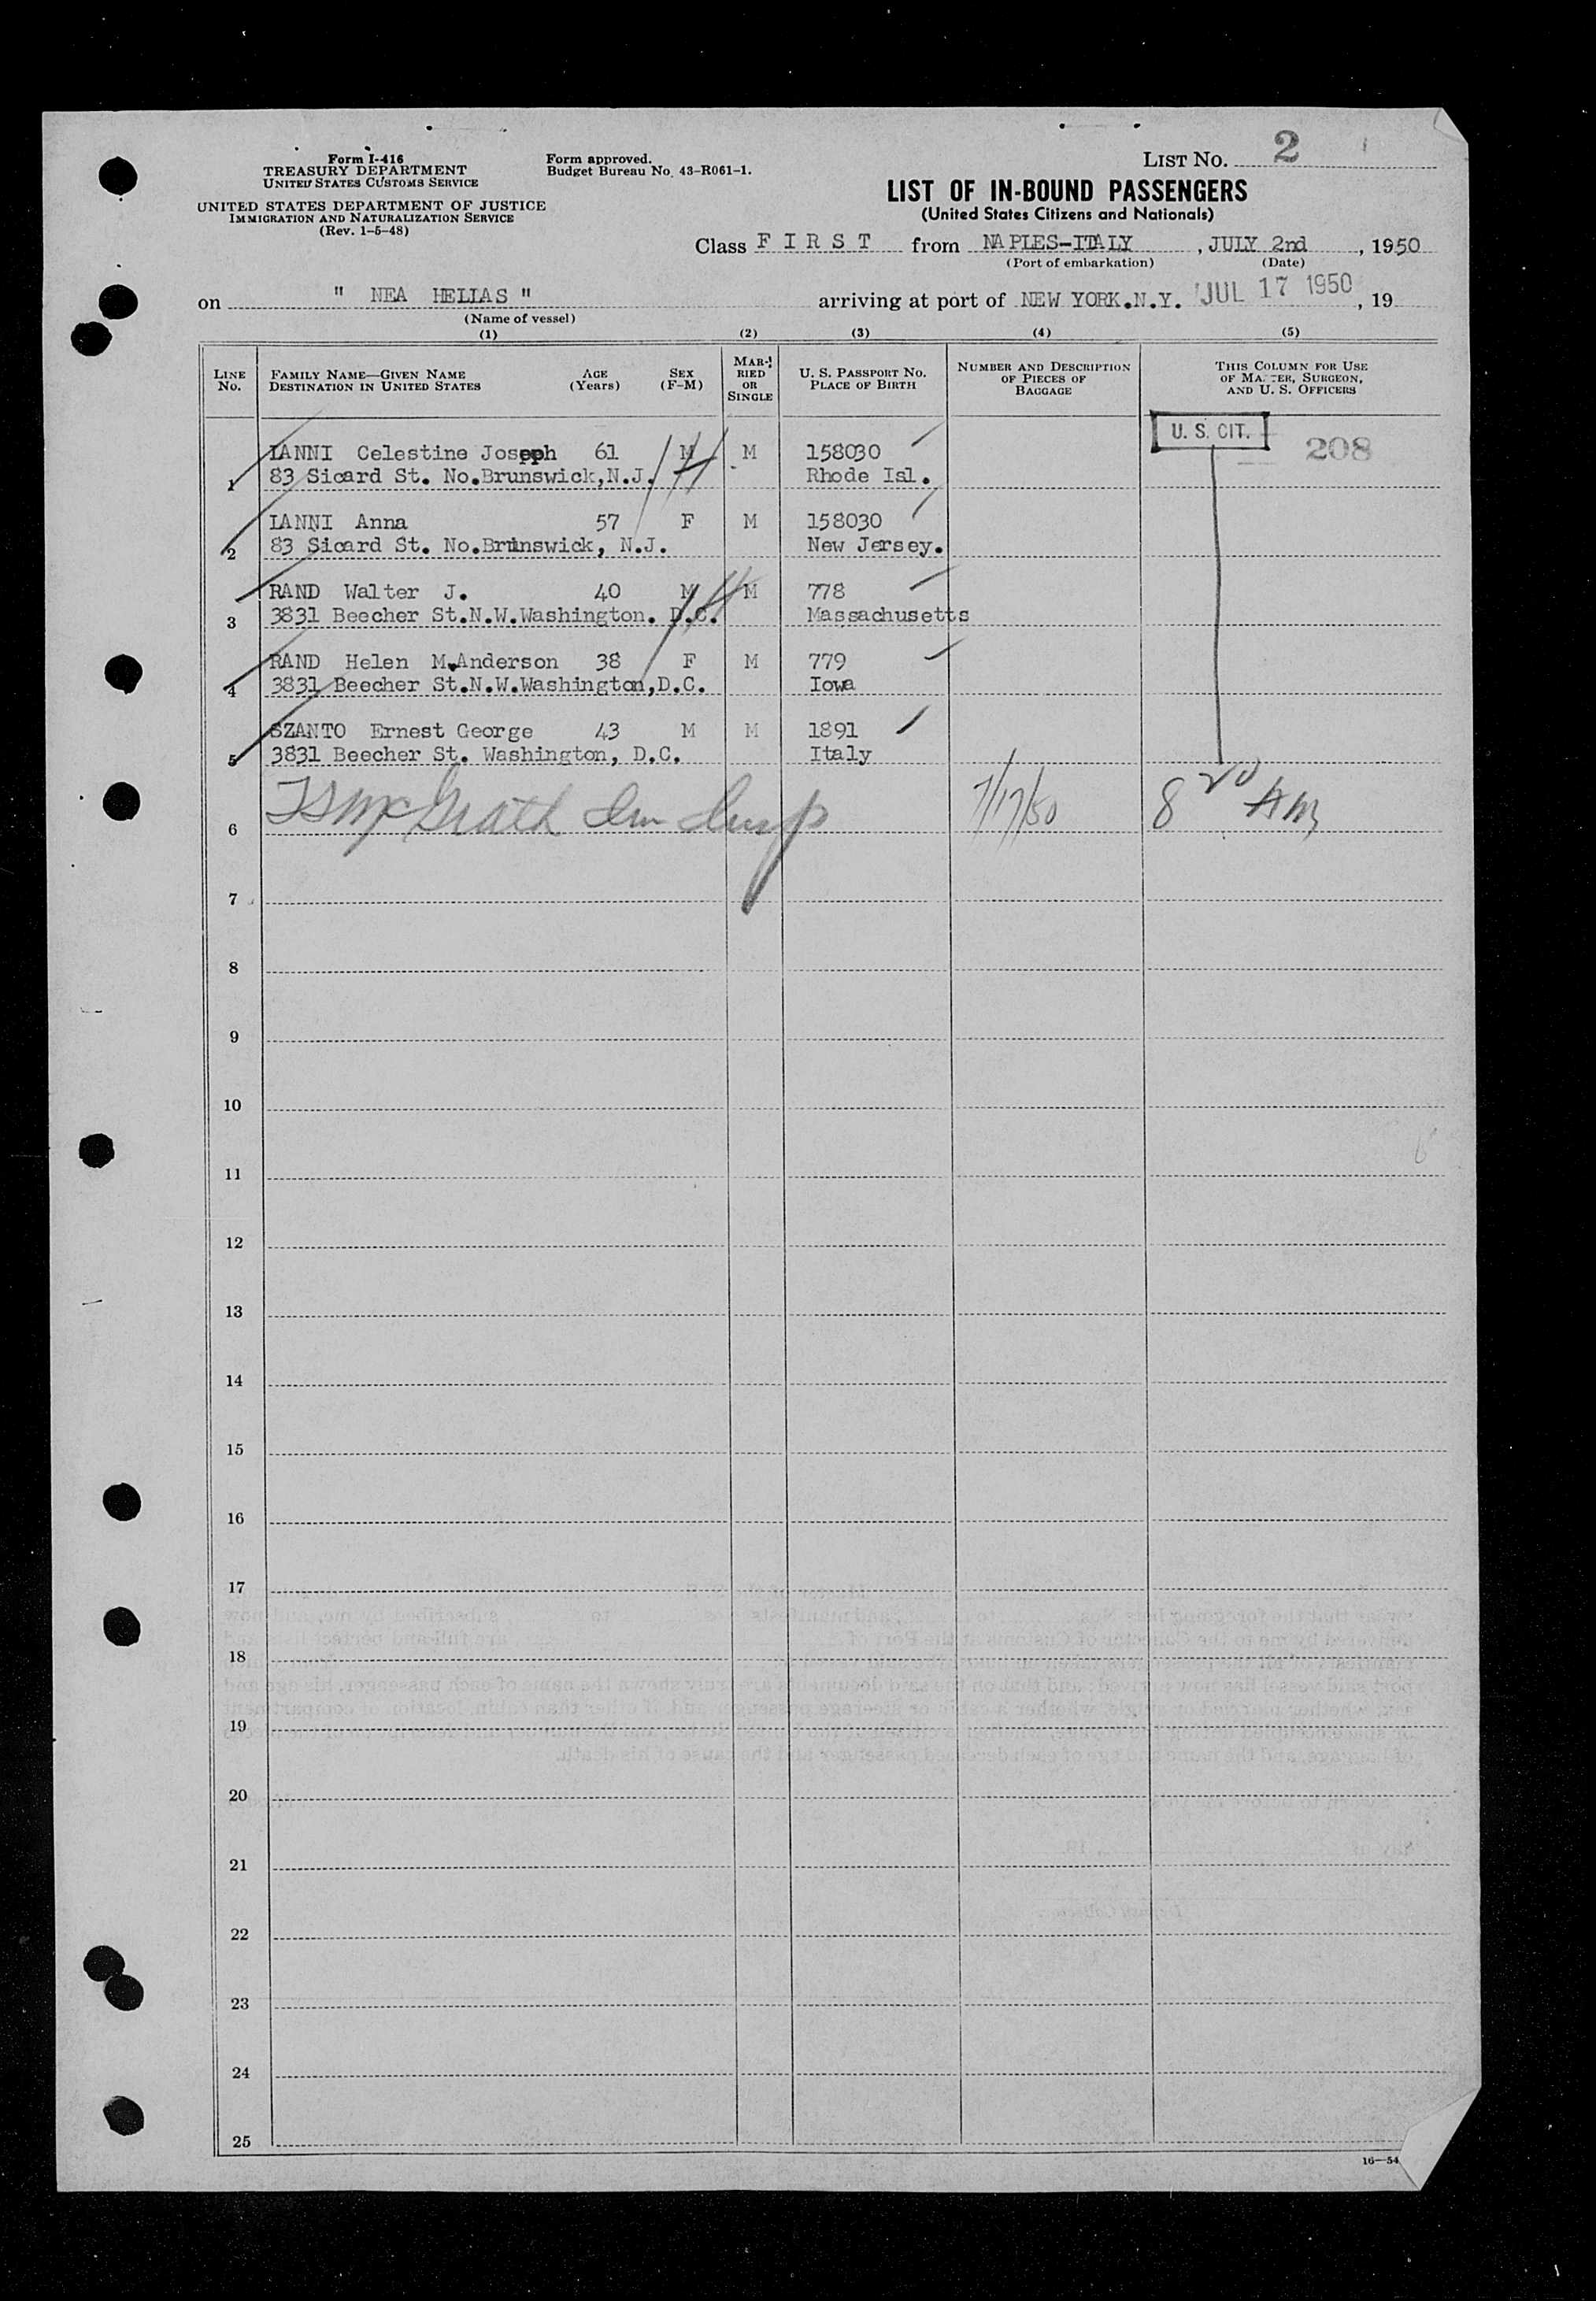 LIST NO. 2
Form I-416
TREASURY DEPARTMENT
UNITED STATES CUSTOMS SERVICE
UNITED STATES DEPARTMENT OF JUSTICE
IMMIGRATION AND NATURALIZATION SERVICE
(Rev. 1-5-48)
Form approved.
Budget Bureau No. 43-R061-1.
LIST OF IN-BOUND PASSENGERS
(United States Citizens and Nationals)
Class F I R S T from NAPLES-ITALY , JULY 2nd , 1950
(Port of embarkation) (Date)
on " NEA HELLAS " arriving at port of NEW YORK.N.Y. JUL 17 1950 , 19
(Name of vessel)
(1) (2) (3) (4) (5)
LINE No. FAMILY NAME—GIVEN NAME DESTINATION IN UNITED STATES AGE (Years) SEX (F-M) MARRIED OR SINGLE U. S. PASSPORT NO. PLACE OF BIRTH NUMBER AND DESCRIPTION OF PIECES OF BAGGAGE THIS COLUMN FOR USE OF MASTER, SURGEON, AND U. S. OFFICERS
U. S. CIT. 208
IANNI Celestine Joseph 61 M M 158030
1 83 Sicard St. No.Brunswick,N.J. Rhode Isl.
IANNI Anna 57 F M 158030
2 83 Sicard St. No.Brunswick, N.J. New Jersey.
RAND Walter J. 40 M M 778
3 3831 Beecher St.N.W.Washington. D.C. Massachusetts
RAND Helen M.Anderson 38 F M 779
4 3831 Beecher St.N.W.Washington,D.C. Iowa
SZANTO Ernest George 43 M M 1891
5 3831 Beecher St. Washington, D.C. Italy
6 McGrath Imm Insp 7/17/50 8 20 AM
7
8
9
10
11
12
13
14
15
16
17
18
19
20
21
22
23
24
25
16—54